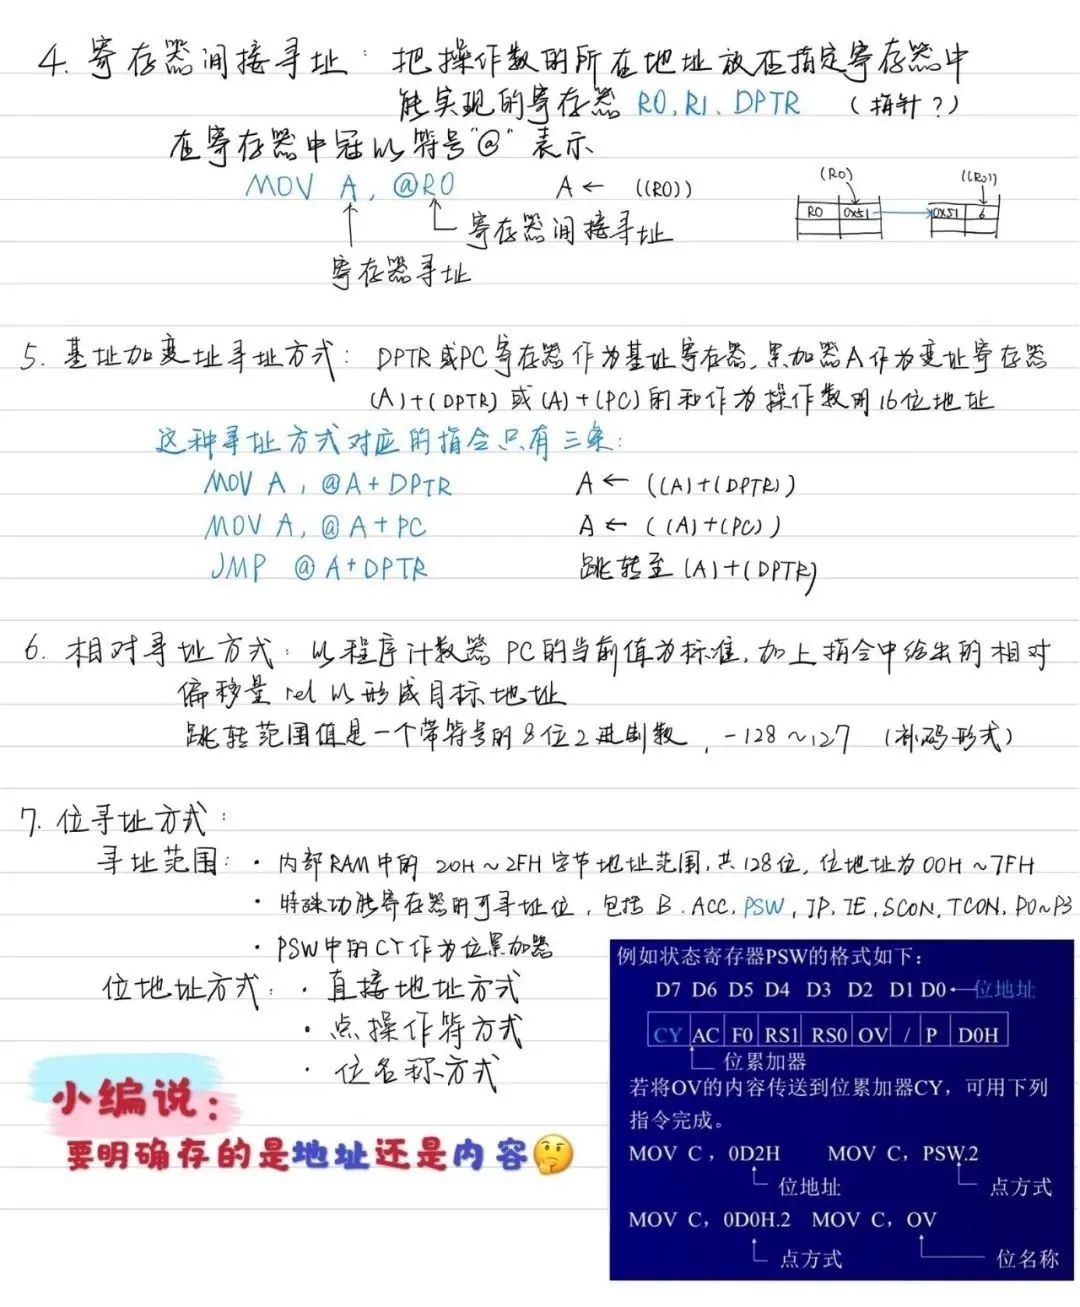 4. 寄存器间接寻址：把操作数的所在地址放在指定寄存器中
能实现的寄存器 R0, R1、DPTR （指针？）
在寄存器中冠以符号"@"表示
MOV A, @R0 A ← ((R0))
(R0) ((R0))
R0 0x51 0x51 6
寄存器间接寻址
寄存器寻址
5. 基址加变址寻址方式：DPTR或PC寄存器作为基址寄存器,累加器A作为变址寄存器
(A)+(DPTR) 或 (A)+(PC)的和作为操作数的16位地址
这种寻址方式对应的指令只有三条：
MOV A, @A+DPTR A ← ((A)+(DPTR))
MOV A, @A+PC A ← ((A)+(PC))
JMP @A+DPTR 跳转至 (A)+(DPTR)
6. 相对寻址方式：以程序计数器 PC的当前值为标准,加上指令中给出的相对
偏移量 rel 以形成目标地址
跳转范围值是一个带符号的8位2进制数，-128～127 (补码形式)
7. 位寻址方式：
寻址范围：· 内部RAM中的 20H～2FH 字节地址范围,共128位, 位地址为00H～7FH
· 特殊功能寄存器的可寻址位，包括 B、ACC, PSW, IP, IE, SCON, TCON, P0~P3
· PSW中的CY作为位累加器
位地址方式：· 直接地址方式
· 点操作符方式
· 位名称方式
小编说：
要明确存的是地址还是内容🤔
例如状态寄存器PSW的格式如下：
D7 D6 D5 D4 D3 D2 D1 D0 位地址
CY AC F0 RS1 RS0 OV / P D0H
位累加器
若将OV的内容传送到位累加器CY，可用下列
指令完成。
MOV C，0D2H MOV C，PSW.2
位地址 点方式
MOV C，0D0H.2 MOV C，OV
点方式 位名称